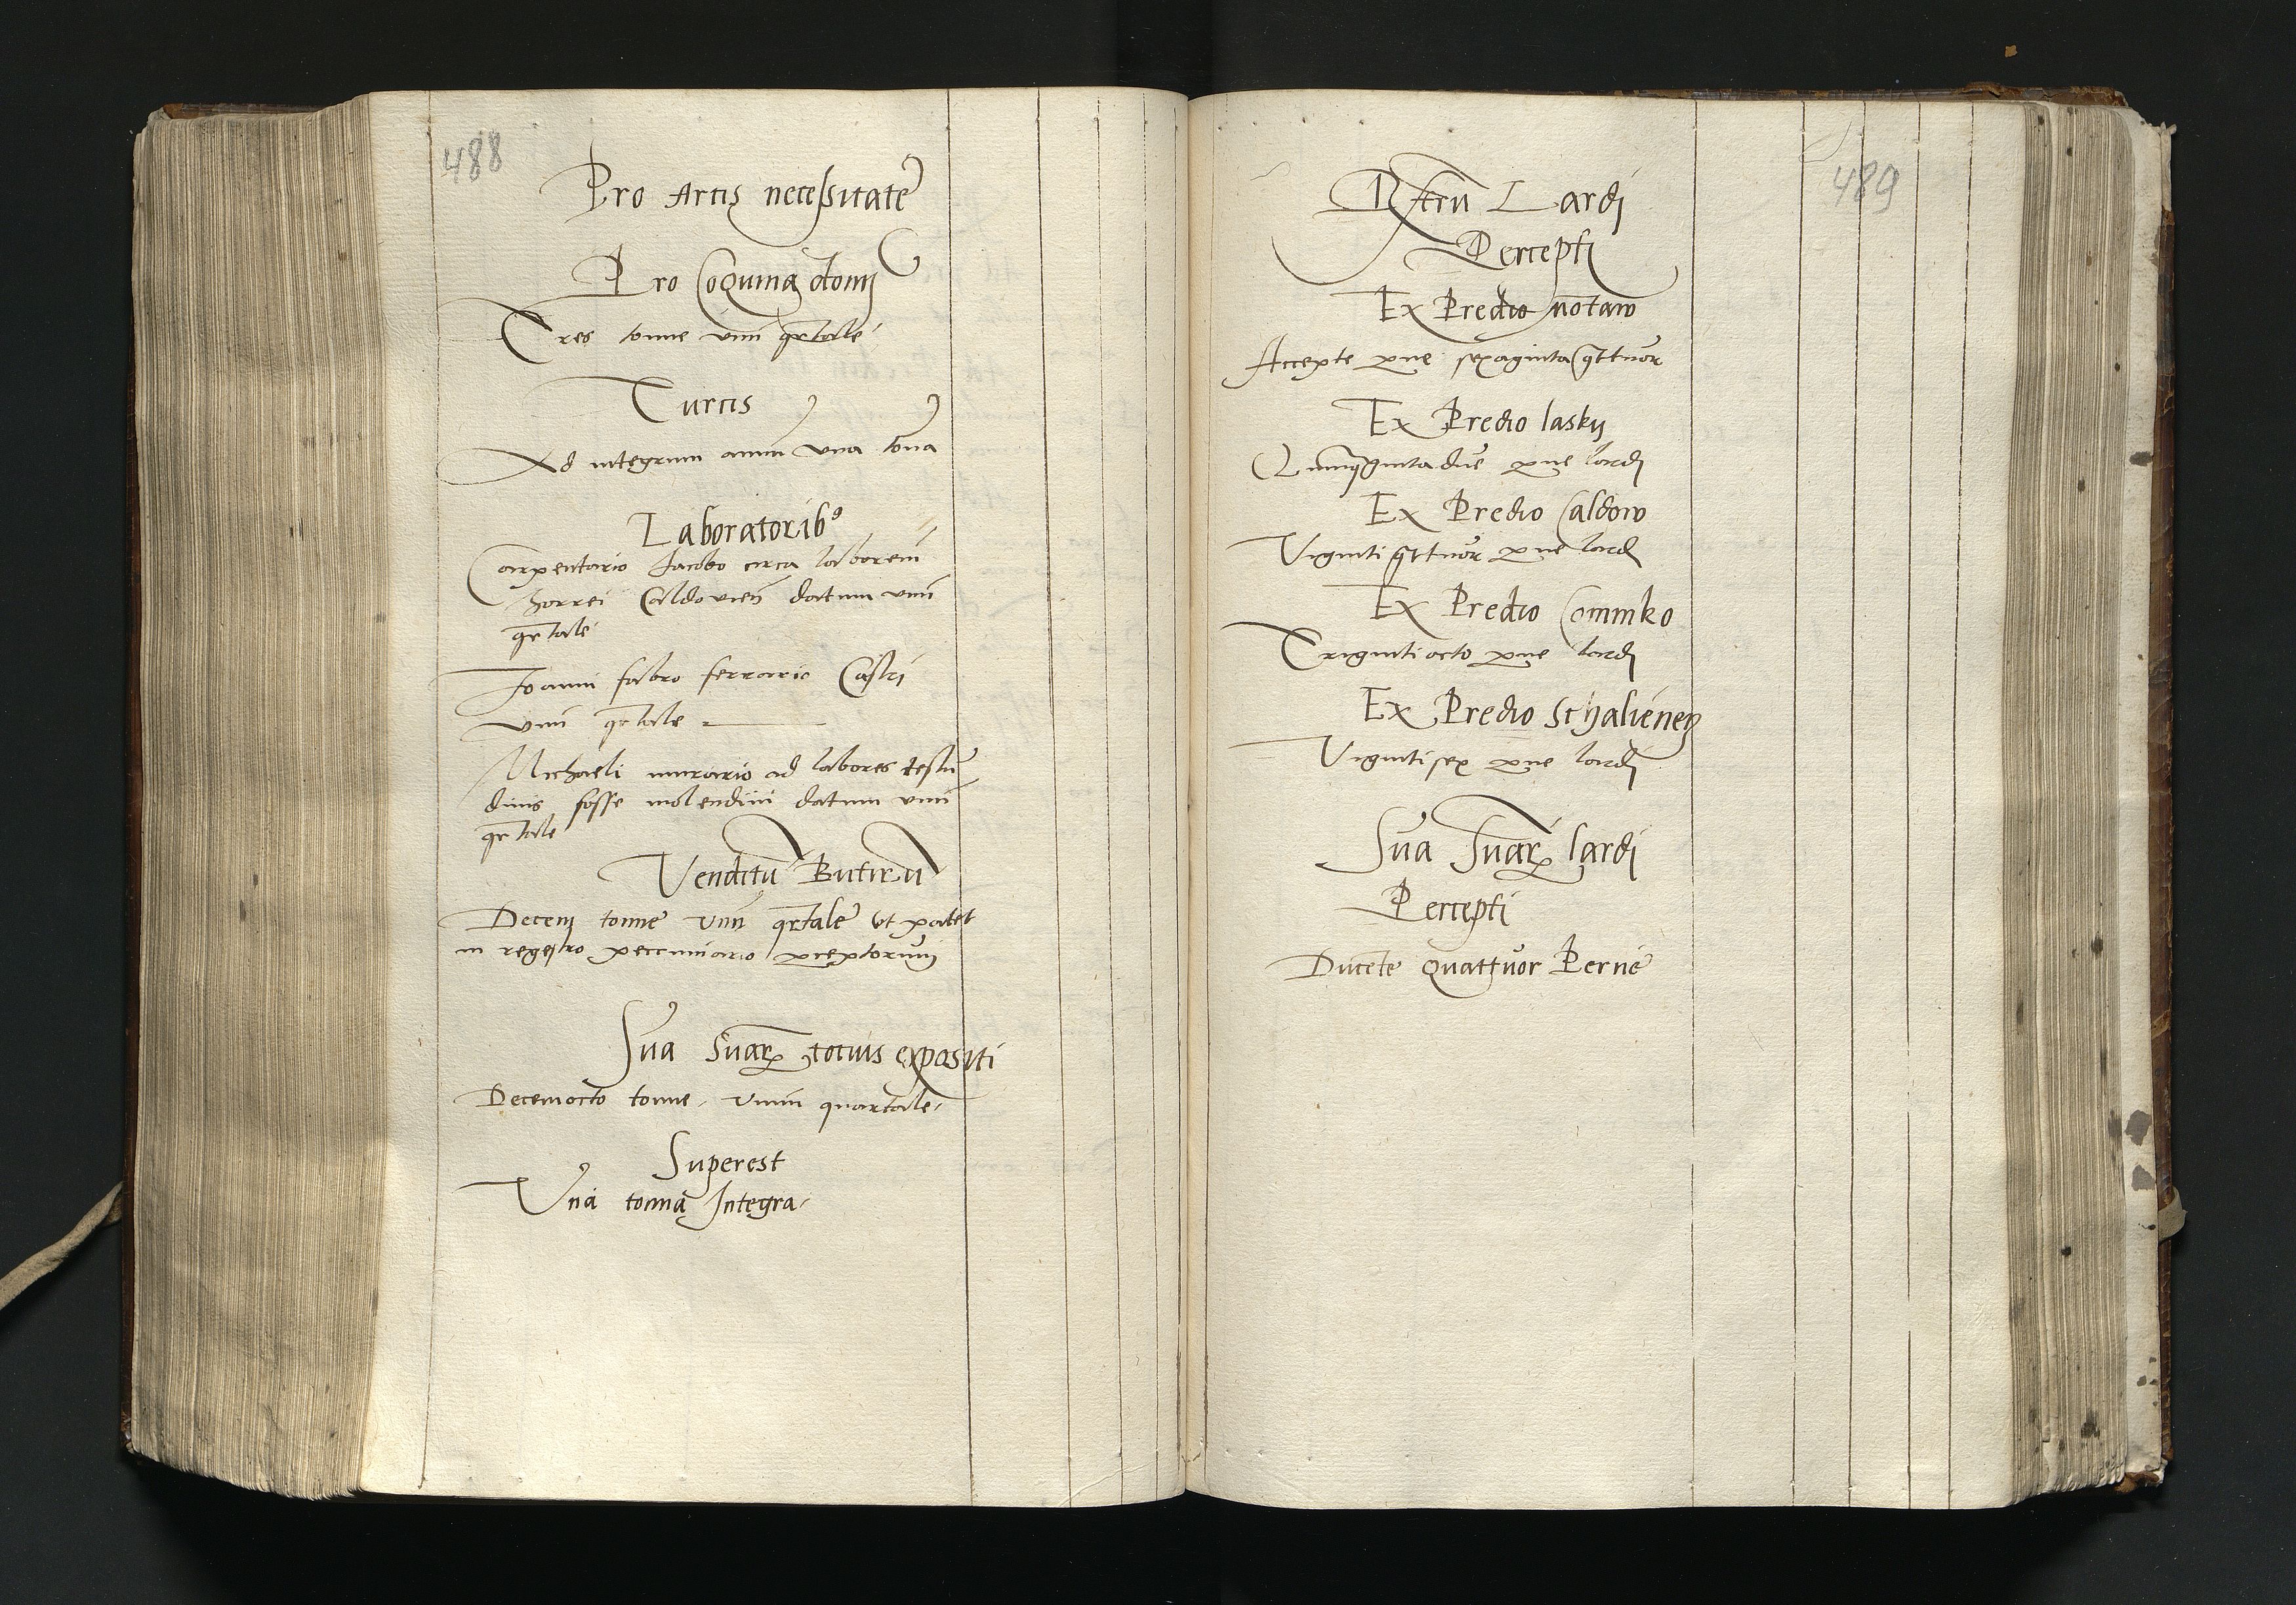 488
Pro Arcis necessitate
Pro Coquina domi
Tres tonne unu qrtale
Turcis
Ad integrum annu una tona
Laboratorib9
Carpentario Jacobo circa laborem
horrei Caldovien datum unu
qrtale
Joanni fabro ferrario Castri
unu qrtale
Michaeli murario ad labores testu
dinis fosse molendini datum unu
qrtale
Venditu Butiru
Decem tonne unu qrtale ut patet
in regestro peccuniario pceptorum
Sua Suar totius expositi
Decemocto tonne unum quartale
Superest
Una tonna Integra
489
Rstru Lardi
Percepti
Ex Predio notaw
Accepte pne sexaginta qttuor
Ex Predio lasky
Quinqginta due pne lardi
Ex Predio Caldow
Viginti qttuor pne lardi
Ex Predio Cominko
Trigintiocto pne lardi
Ex Predio Schalienen
Vigintisex pne lardi
Sua Suar lardi
Percepti
Ducete quattuor Perne